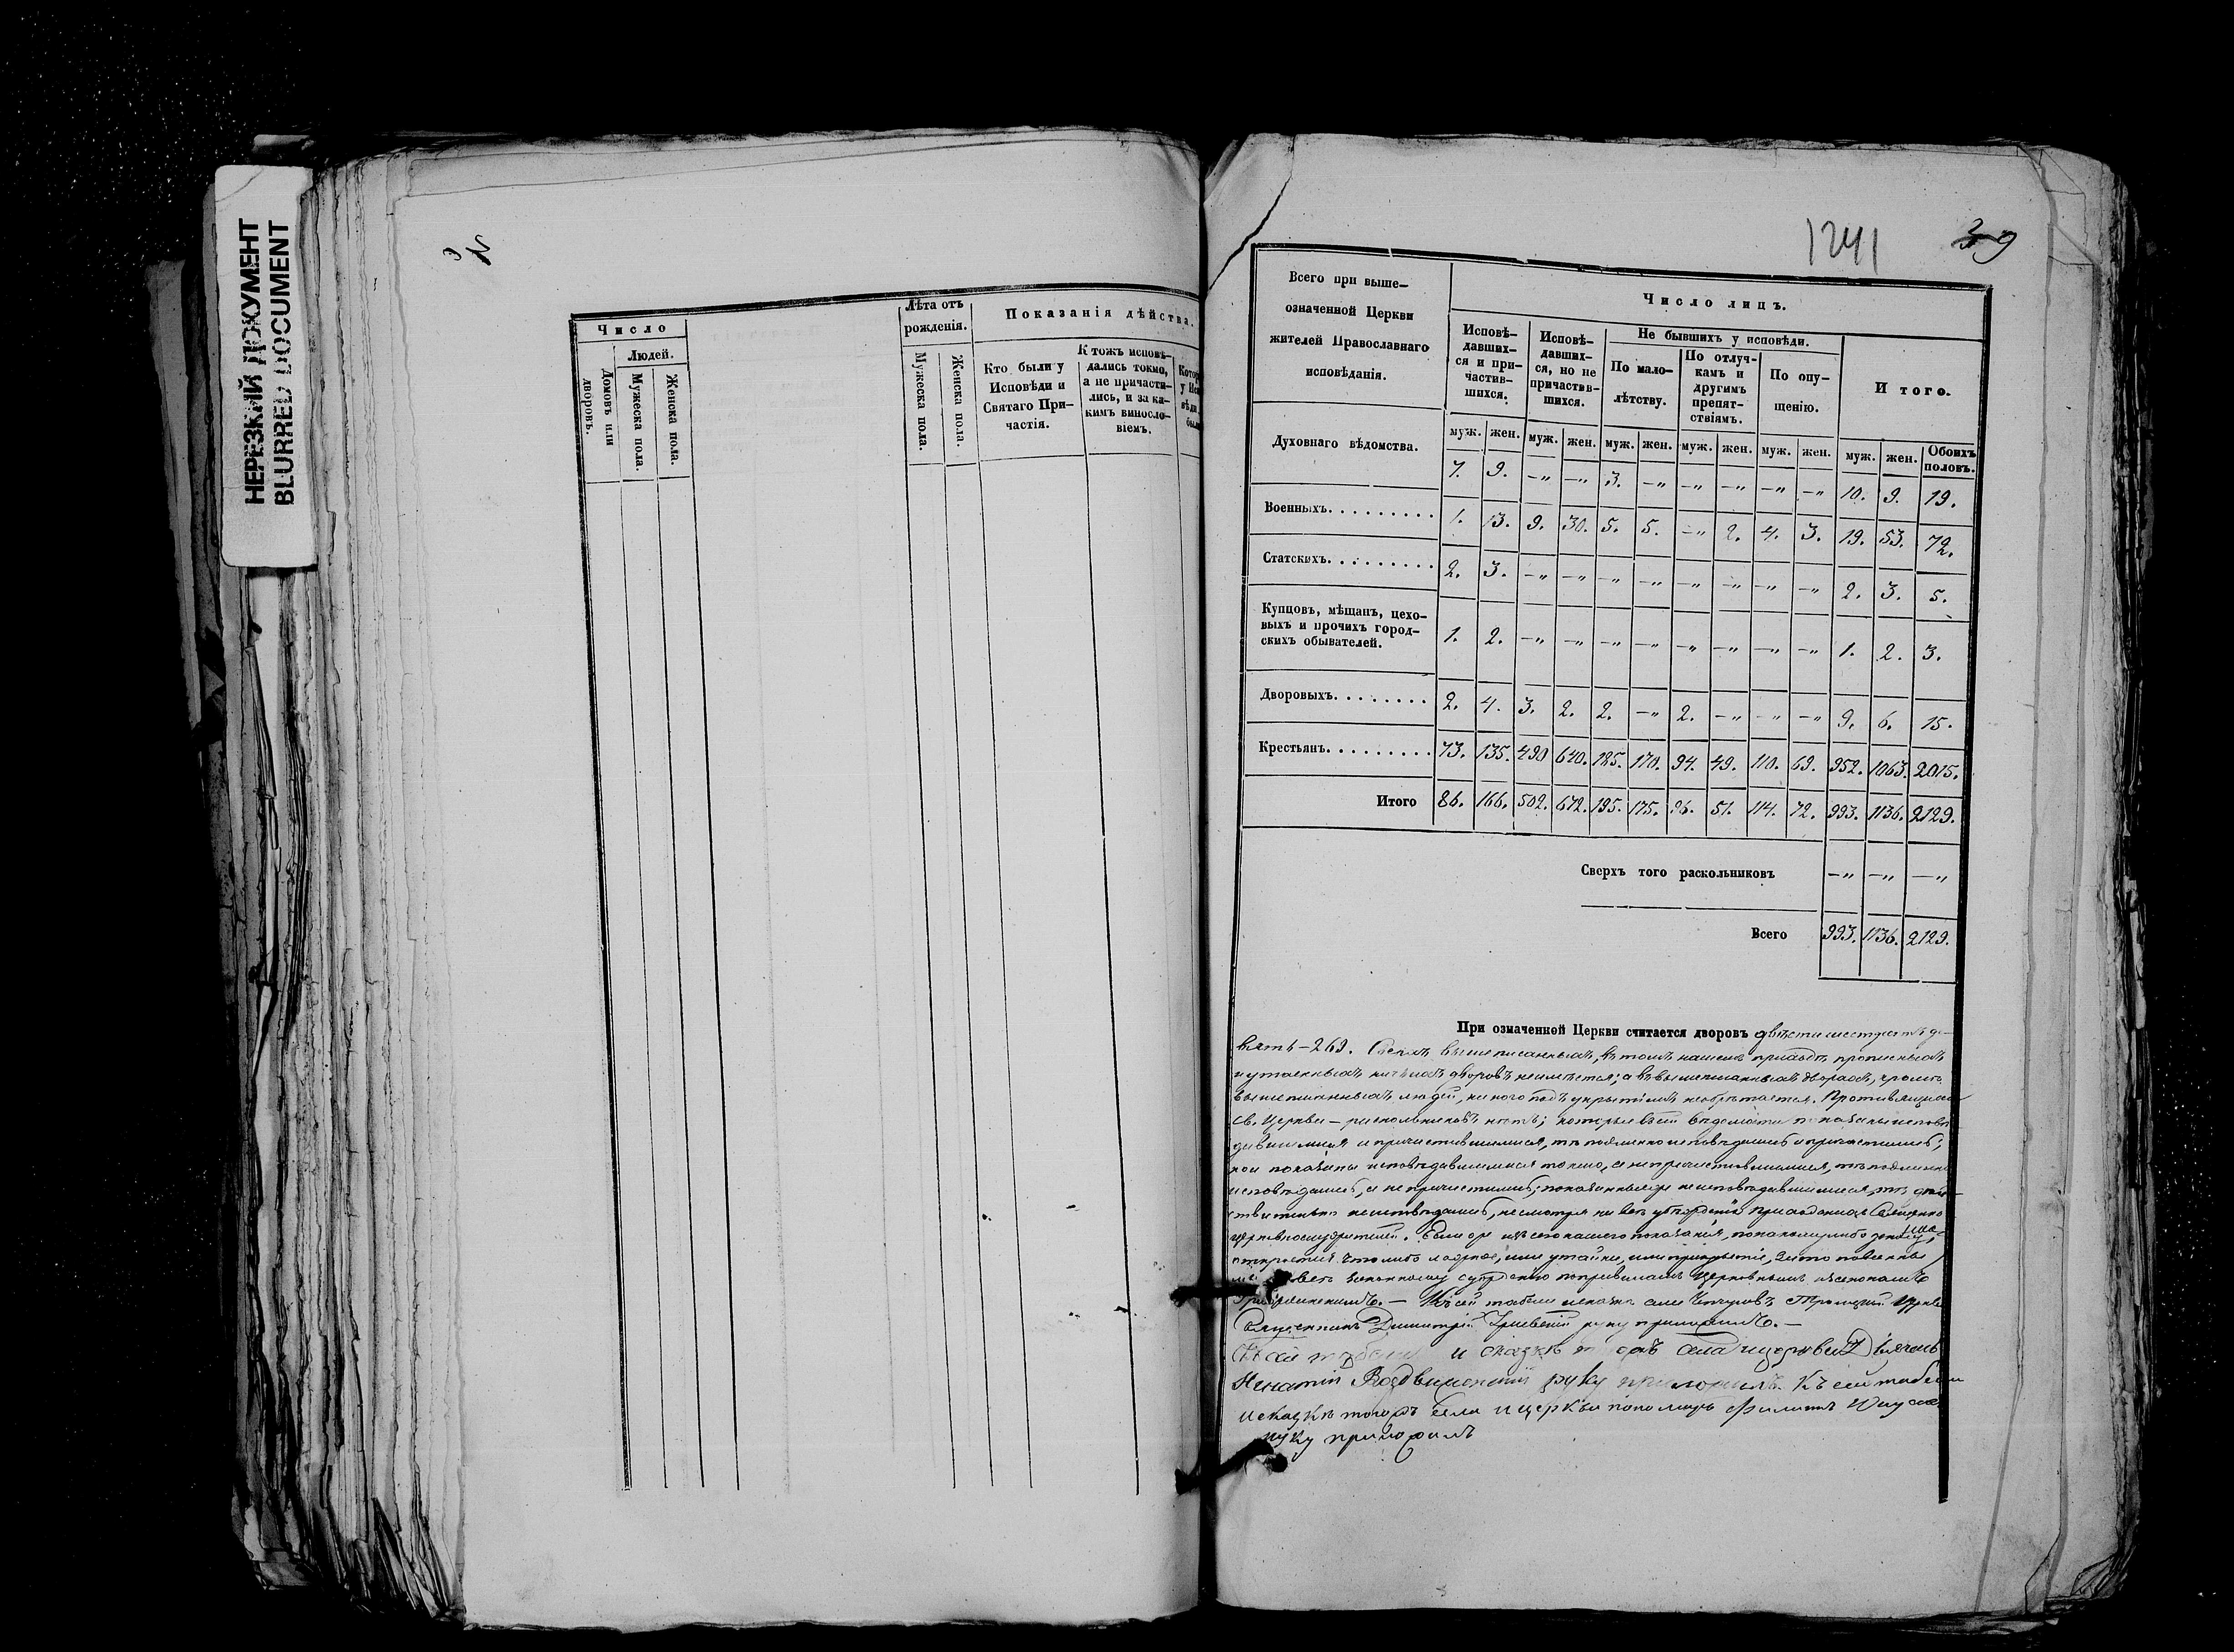 НЕРЕЗКИЙ ДОКУМЕНТ
BLURRED DOCUMENT
Число
Людей.
Домовъ или дворовъ.
Мужеска пола.
Женска пола.
Лѣта отъ
рожденія.
Мужеска пола.
Женска пола.
Показанія дѣйства.
Кто были у
Исповѣди и
Святаго При-
частія.
К тожъ исповѣ-
дались токмо,
а не причасти-
лись, и за ка-
кимъ винosло-
віемъ.
1241
39
Всего при выше-
означенной Церкви
жителей Православнаго
исповѣданія.
Число лицъ.
Исповѣ-
давших-
ся и при-
частив-
шихся.
Исповѣ-
давших-
ся, но не
причастив-
шихся.
Не бывшихъ у исповѣди.
По мало-
лѣтству.
По отлуч-
камъ и
другимъ
препят-
ствіямъ.
По опу-
щенію.
Итого.
муж. жен. муж. жен. муж. жен. муж. жен. муж. жен. муж. жен. Обоихъ половъ.
Духовнаго вѣдомства. 7. 9. —„ —„ 3. —„ —„ —„ —„ —„ 10. 9. 19.
Военныхъ......... 1. 13. 9. 30. 5. 5. —„ 2. 4. 3. 19. 53. 72.
Статскихъ......... 2. 3. —„ —„ —„ —„ —„ —„ —„ —„ 2. 3. 5.
Купцовъ, мѣщанъ, цехо-
выхъ и прочихъ город-
скихъ обывателей. 1. 2. —„ —„ —„ —„ —„ —„ —„ —„ 1. 2. 3.
Дворовыхъ........ 2. 4. 3. 2. 2. —„ 2. —„ —„ —„ 9. 6. 15.
Крестьянъ......... 73. 135. 490 640. 185. 170. 94. 49. 110. 69. 952. 1063. 2015.
Итого 86. 166. 502. 672. 195. 175. 96. 51. 114. 72. 993. 1136. 2129.
Сверхъ того раскольниковъ —„ —„ —„
Всего 993. 1136. 2129.
При означенной Церкви считается дворовъ двѣсти шестдесятъ де-
вять – 269. Свѣмъ вышеписанныхъ, въ томъ нашемъ приходѣ прописныхъ
и утаенныхъ дворовъ неимѣется; а въ вышеписанныхъ дворахъ, кромѣ
вышеписанныхъ людей, никого подъ укрытіемъ необрѣтается. Противящихся
Св. Церкви – раскольниковъ нѣтъ; которые въ сей вѣдомости показаны исповѣ-
давшимися и причастившимися, тѣ подлинно исповѣдались и причастились;
кои показаны исповѣдавшимися токмо, а не причастившимися, тѣ подлинно
исповѣдались, а не причастились; показанные же неисповѣдавшимися, тѣ дѣй-
ствительно неисповѣдались, несмотря на всѣ убѣжденія приходскихъ Священно
церковнослужителей. Если же изъ сего нашего показанія, по какому либо доносу,
откроется что либо ложное, или утайки, или прикрытіе, за то повинны
законному сужденію по правиламъ Церковнымъ и законамъ
Гражданскимъ. – Къ сей табели и сказкѣ села Троицкой Церкви
Священникъ Димитрій руку приложилъ. –
Къ сей табели и сказкѣ тогожъ села и церкви Діяконъ
Игнатій Воздвиженскій руку приложилъ. Къ сей табели
и сказкѣ тогожъ села и церкви пономарь Филиппъ
руку приложилъ